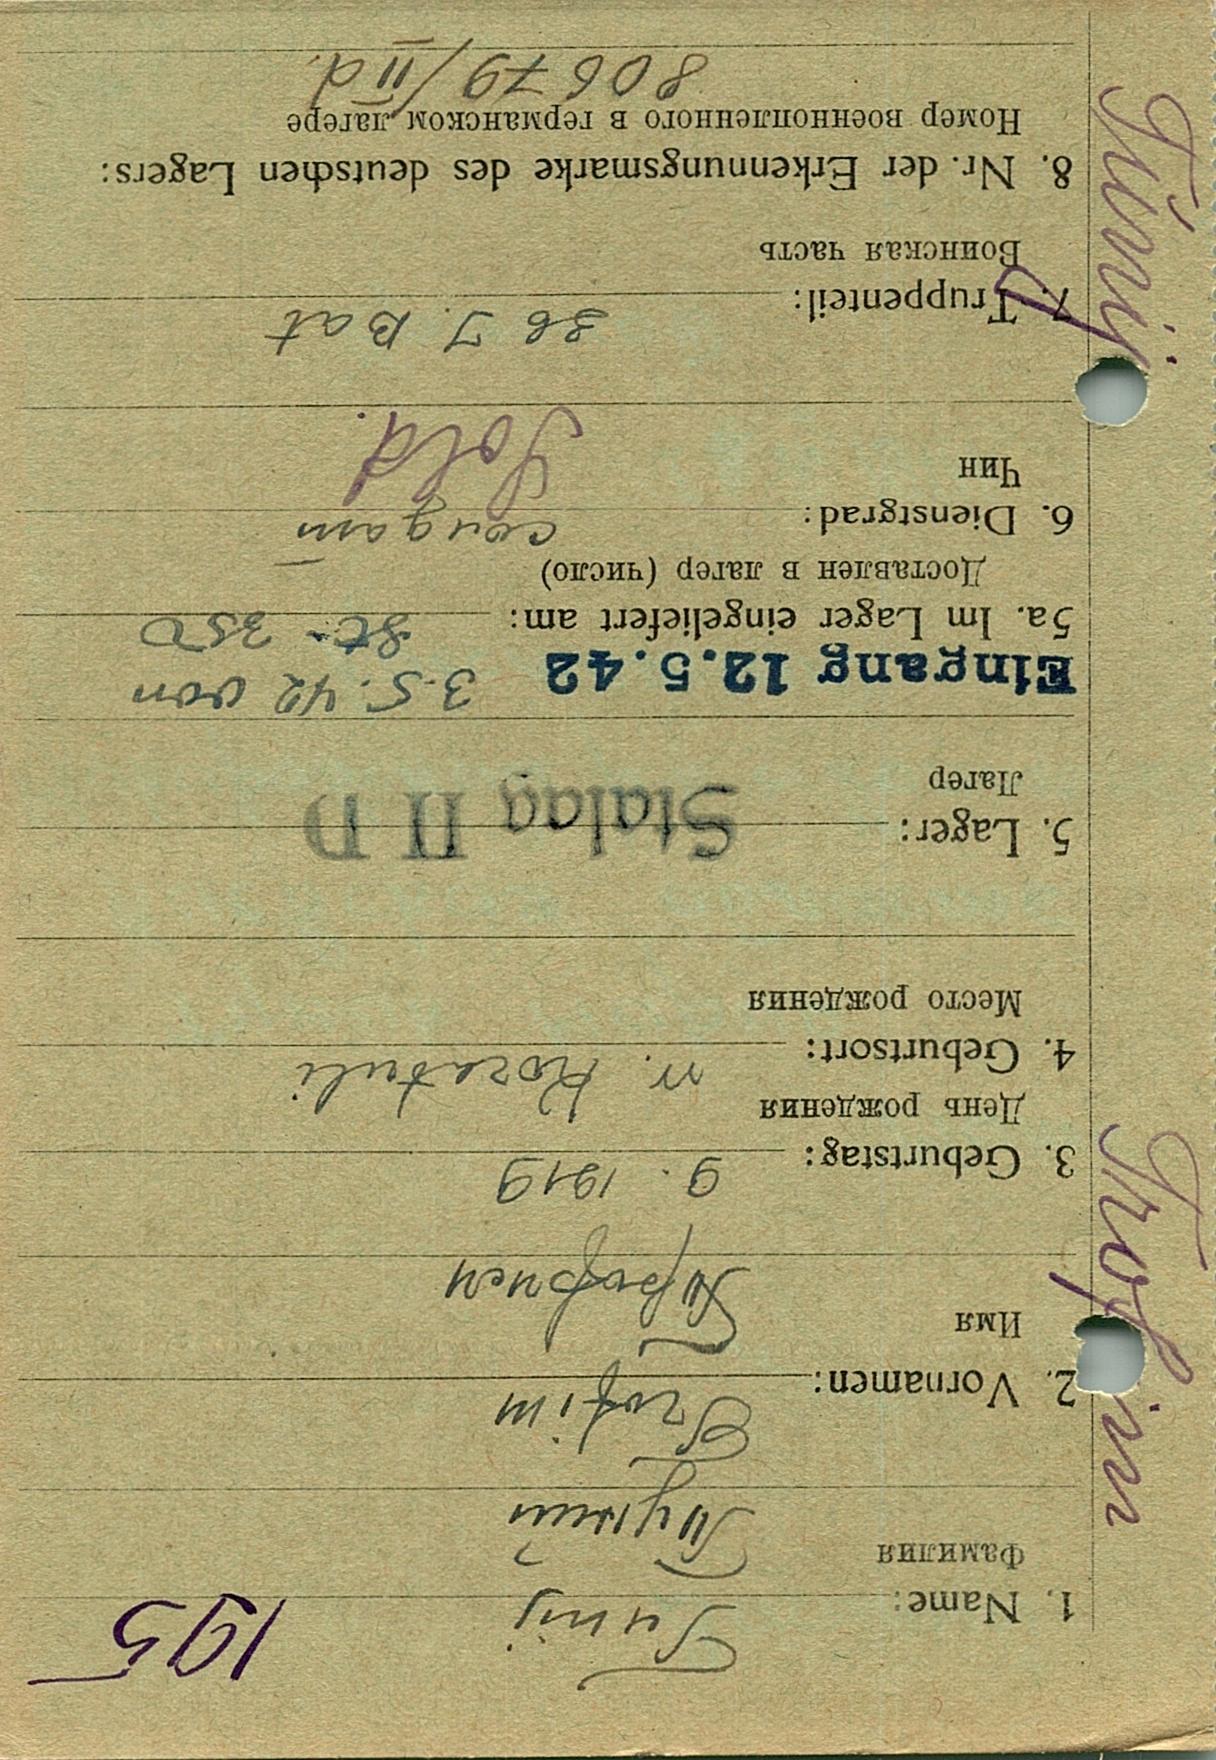 195
Tunij
1. Name:
Фамилия
Туний
Trofim
2. Vornamen:
Имя
Трофим
9. 1919
3. Geburtstag:
День рождения
n. Kozatuli
4. Geburtsort:
Место рождения
5. Lager: Stalag II D
Лагер
Eingang 12.5.42 3.5.42 von
5a. Im Lager eingeliefert am: St. 350
Доставлен в лагер (число)
6. Dienstgrad: солдат
Чин
Sold.
36 J. Bat
7. Truppenteil:
Воинская часть
8. Nr. der Erkennungsmarke des deutschen Lagers:
Номер военнопленного в германском лагере
80679/II d.
Tunij
Trofim